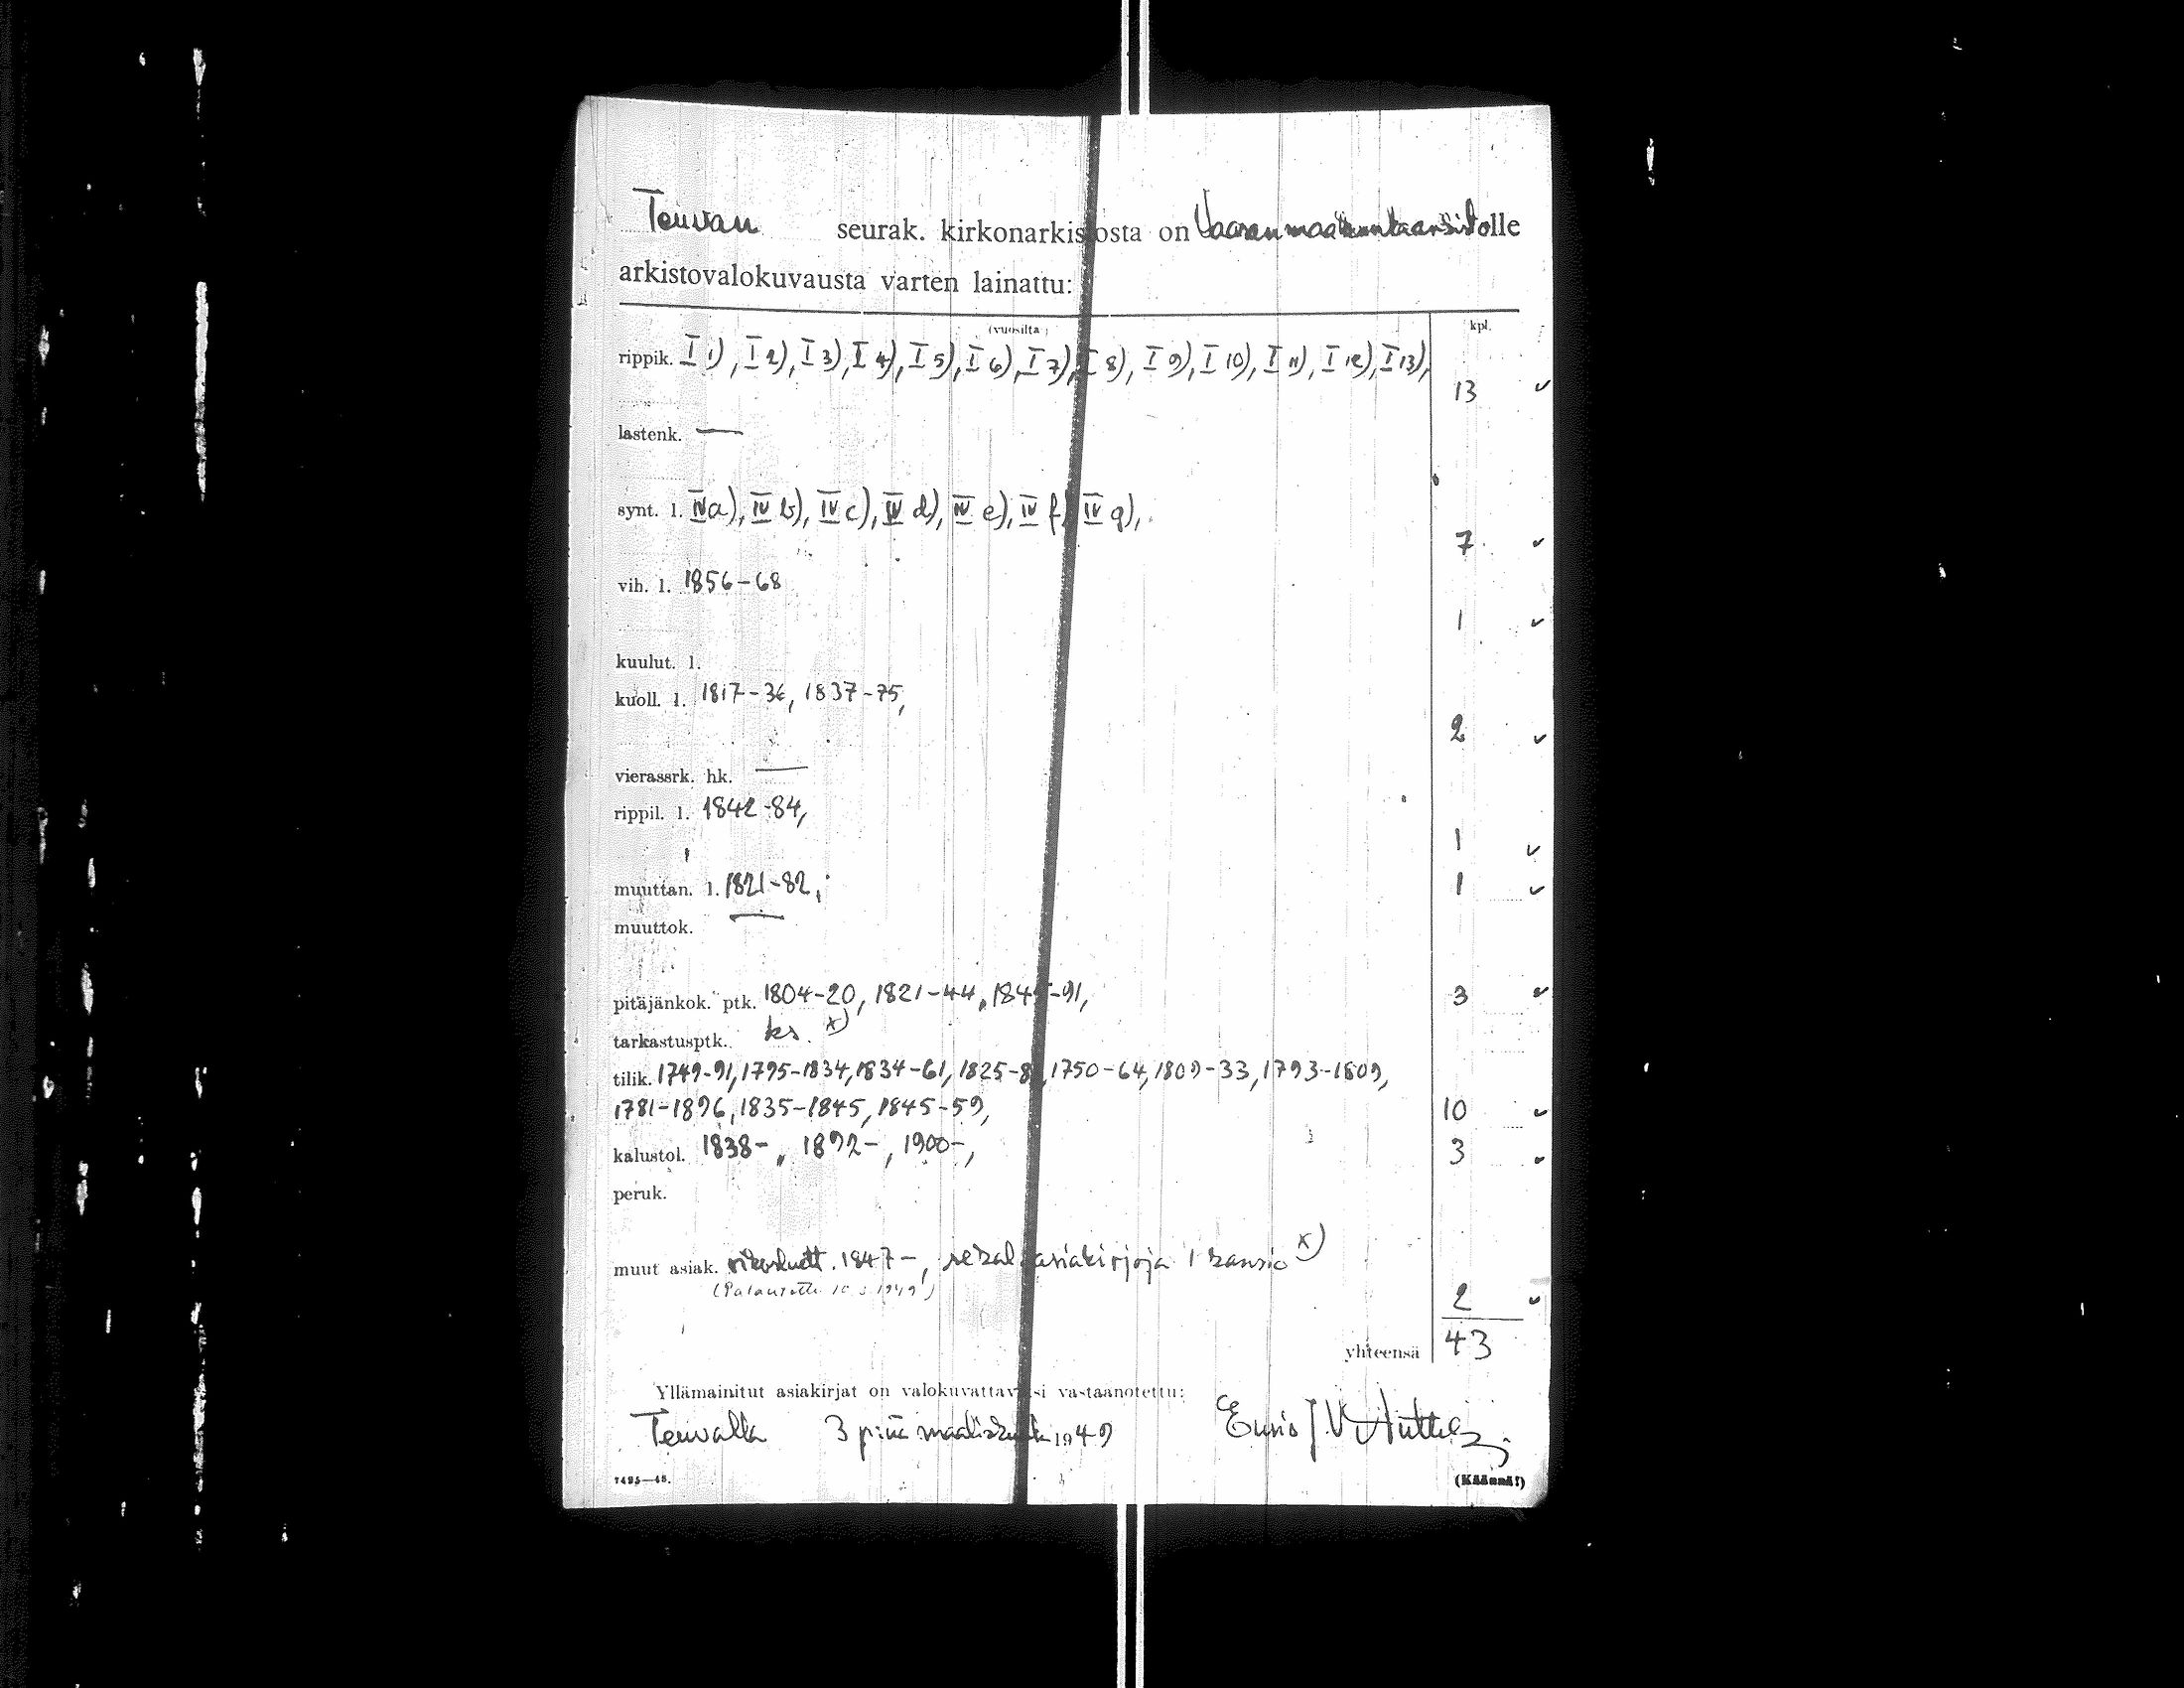 Teuvan seurak. kirkonarkistosta on Vaasan maakunta-arkistolle
arkistovalokuvausta varten lainattu:
(vuosilta) kpl.
rippik. I 1), I 2), I 3), I 4), I 5), I 6), I 7), I 8), I 9), I 10), I 11), I 12), I 13), 13 ✓
lastenk. —
synt. l. IV a), IV b), IV c), IV d), IV e), IV f), IV g), 7 ✓
vih. l. 1856-68 1 ✓
kuulut. l.
kuoll. l. 1817-36, 1837-75, 2 ✓
vierassrk. hk. —
rippil. l. 1842-84, 1 ✓
muuttan. l. 1821-82, 1 ✓
muuttok. —
pitäjänkok. ptk. 1804-20, 1821-44, 1845-91, 3 ✓
tarkastusptk. ks. x)
tilik. 1749-91, 1795-1834, 1834-61, 1825-8 , 1750-64, 1809-33, 1793-1809,
1781-1896, 1835-1845, 1845-59, 10 ✓
kalustol. 1838-, 1892-, 1900-, 3 ✓
peruk.
muut asiak. 1847-, sekal. asiakirjoja 1 kansio x)
(Palautettu 1949) 2 ✓
yhteensä 43
Yllämainitut asiakirjat on valokuvattavaksi vastaanotettu:
Teuvalla 3 p:nä maaliskuuta 1949 J.V.
7495—48. (Käännä!)